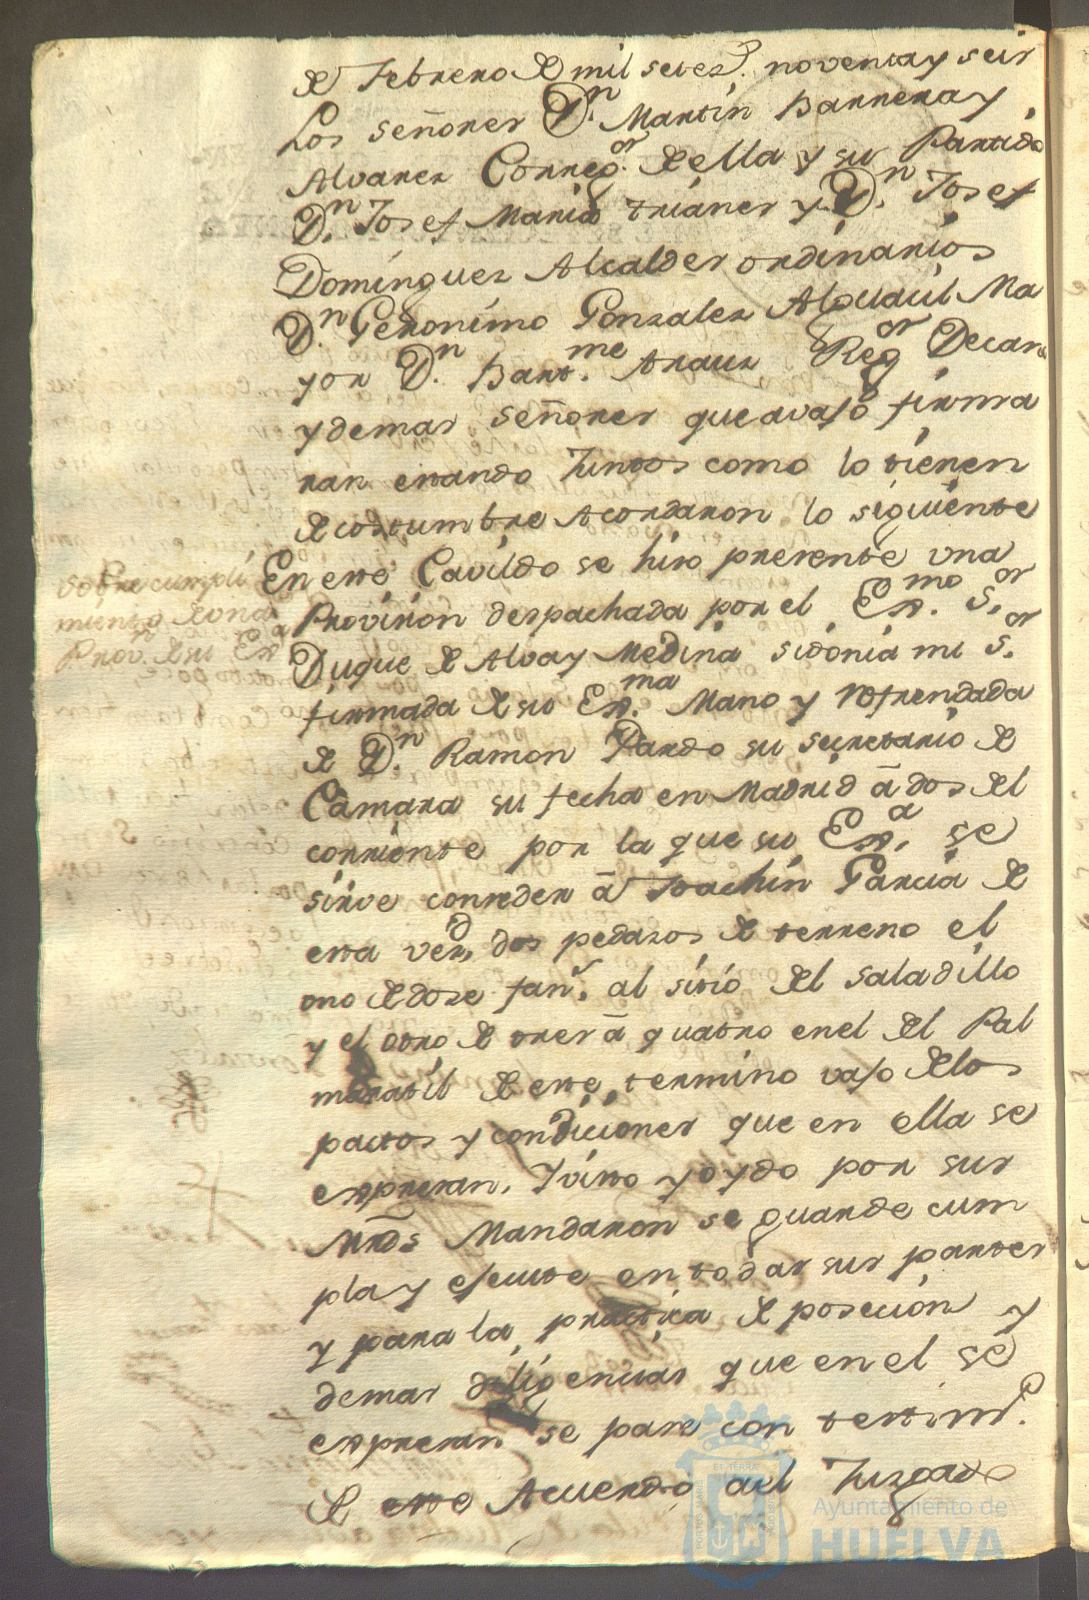 de Febrero de mil setez.s noventa y seis
Los señores D.n Martin Barrera y
Alvarez Correg.or de ella y su Partido
D.n Josef Maria trianes y D.n Josef
Dominguez Alcaldes ordinarios
D.n Geronimo Gonzalez Alguacil Ma
yor D.n Bart.me Arauz Reg.or Decano
y demas señores que avajo firma
ran estando Juntos como lo tienen
de costumbre Acordaron lo siguiente
Sobre cumpli
miento de una
Prov.n de su Ex.a
En este Cavildo se hizo presente una
Provision despachada por el Ex.mo S.or
Duque de Alva y Medina sidonia mi S.or
firmada de su Ex.ma Mano y refrendada
de D.n Ramon Pardo su secretario de
Camara su fecha en Madrid â dos del
corriente por la que su Ex.a se
sirve conceder â Joachin Garcia de
esta vez.d dos pedazos de terreno el
uno de doze fan.s al sitio del saladillo
y el otro de tres â quatro en el del Pal
maratil de este termino vajo de los
pactos y condiciones que en ella se
expresan, Y visto y oydo por sus
Mrds Mandaron se guarde cum
pla y ejecute en todas sus partes
y para la practica de posecion y
demas diligencias que en el se
expresan se pase con testim.o
de este Acuerdo al Juzgado
ET TERRA
Ayuntamiento de
HUELVA